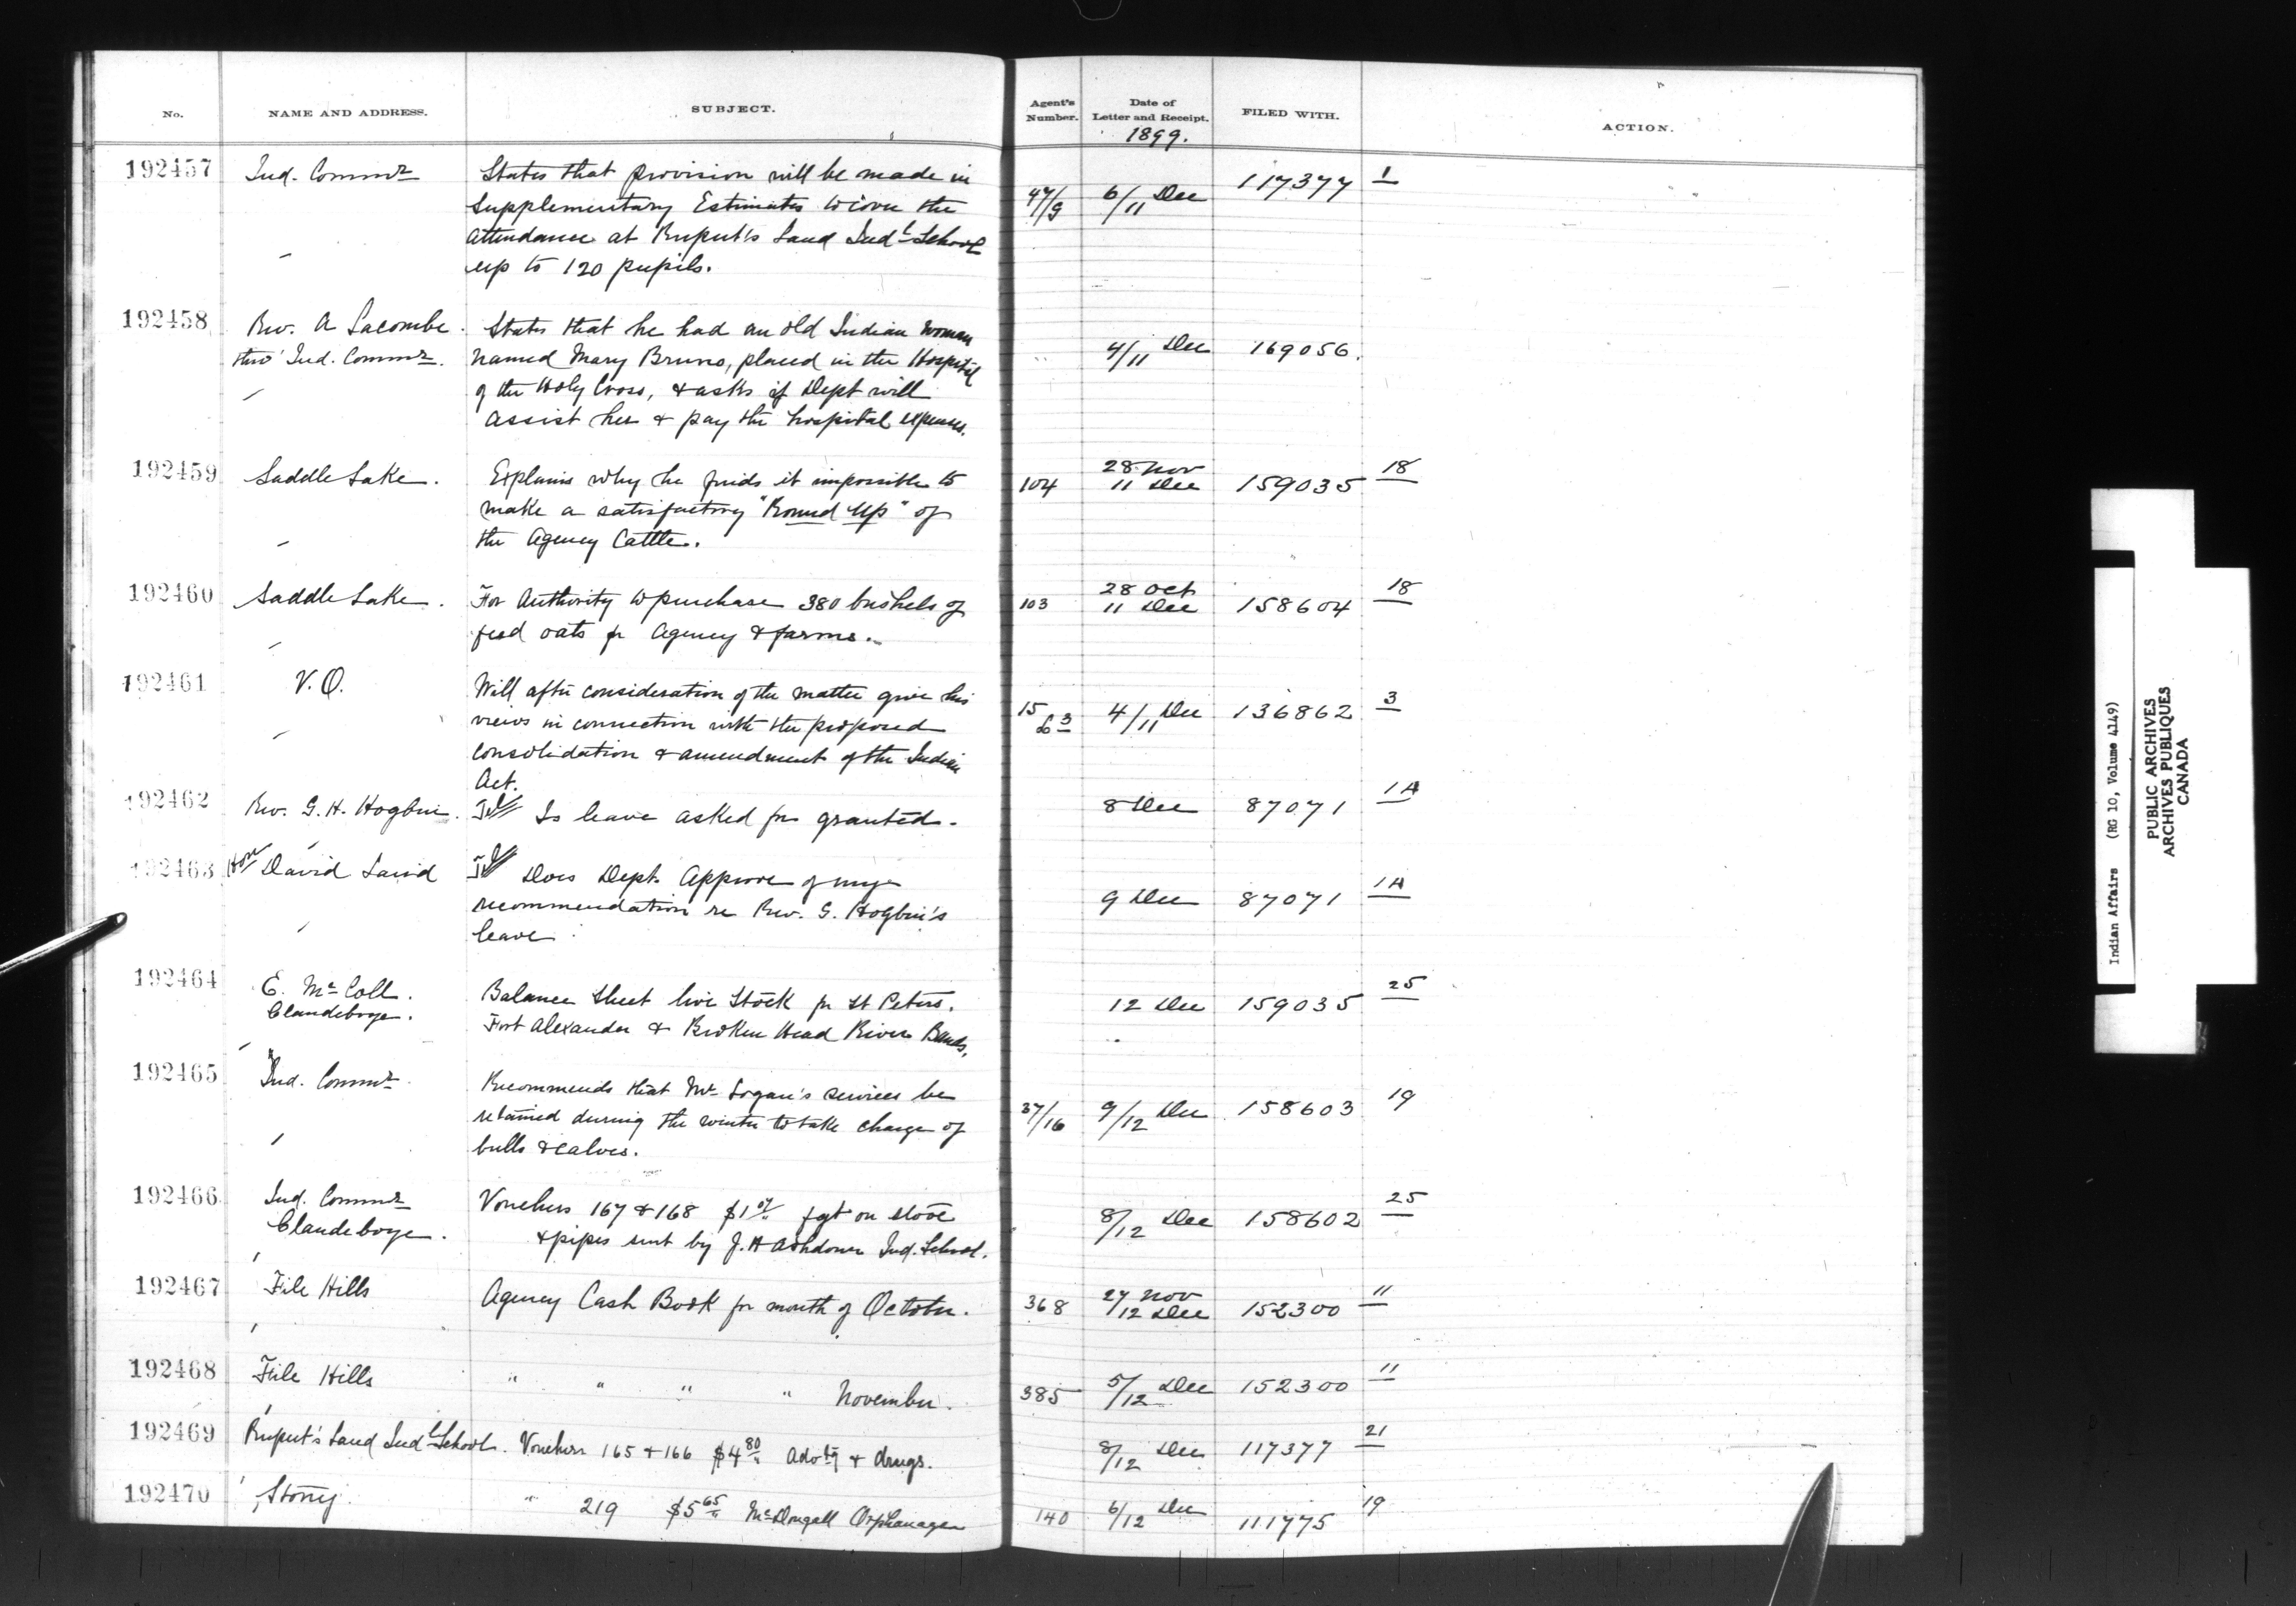 No. NAME AND ADDRESS. SUBJECT. Agent's Number. Date of Letter and Receipt. FILED WITH. ACTION.
1899.
192457 Ind. Commr States that provision will be made in 47/9 6/11 Dec 117377 1
Supplementary Estimates to cover the
attendance at Rupert's Land Indl School
up to 120 pupils.
192458 Rev. A Lacombe States that he had an old Indian woman
thro' Ind. Commr. named Mary Bruno, placed in the Hospital 4/11 Dec 169056.
of the Holy Cross, & asks if Dept will
assist her & pay the hospital expenses.
192459 Saddle Lake. Explains why he finds it impossible to 104 28 Nov 11 Dec 159035 18
make a satisfactory "Round Up" of
the Agency Cattle.
192460 Saddle Lake. For Authority to purchase 380 bushels of 103 28 Oct 11 Dec 158604 18
feed oats fr Agency & farms.
192461 V.O. Will after consideration of the matter give his 15 3 4/11 Dec 136862 3
views in connection with the proposed
consolidation & amendment of the Indian
Act.
192462 Rev. G. H. Hogbin. Tel Is leave asked for granted. 8 Dec 87071 1A
192463 Hon David Laird Tel Does Dept. Approve of my 9 Dec 87071 1A
recommendation re Rev. G. Hogbin's
leave
192464 E. Mc Coll. Balance Sheet live Stock fr St Peters. 12 Dec 159035 25
Clandeboye. Fort Alexander & Broken Head River Bands.
192465 Ind. Commr Recommends that Mr Logan's services be 37/16 9/12 Dec 158603 19
retained during the winter to take charge of
bulls & calves.
192466 Ind. Commr Vouchers 167 & 168 fgt on stove 8/12 Dec 158602 25
Clandeboye. & pipes sent by J. H Ashdown Ind. School.
192467 File Hills Agency Cash Book for month of October. 368 27 Nov /12 Dec 152300 11
192468 File Hills " " " " November. 385 5/12 Dec 152300 11
192469 Rupert's Land Indl School. Vouchers 165 & 166 $4 80 Advtg & drugs. 8/12 Dec 117377 21
192470 Stony " 219 $5 65 McDougall Orphanage 140 6/12 Dec 111775 19
Indian Affairs (RG 10, Volume 4149)
PUBLIC ARCHIVES
ARCHIVES PUBLIQUES
CANADA